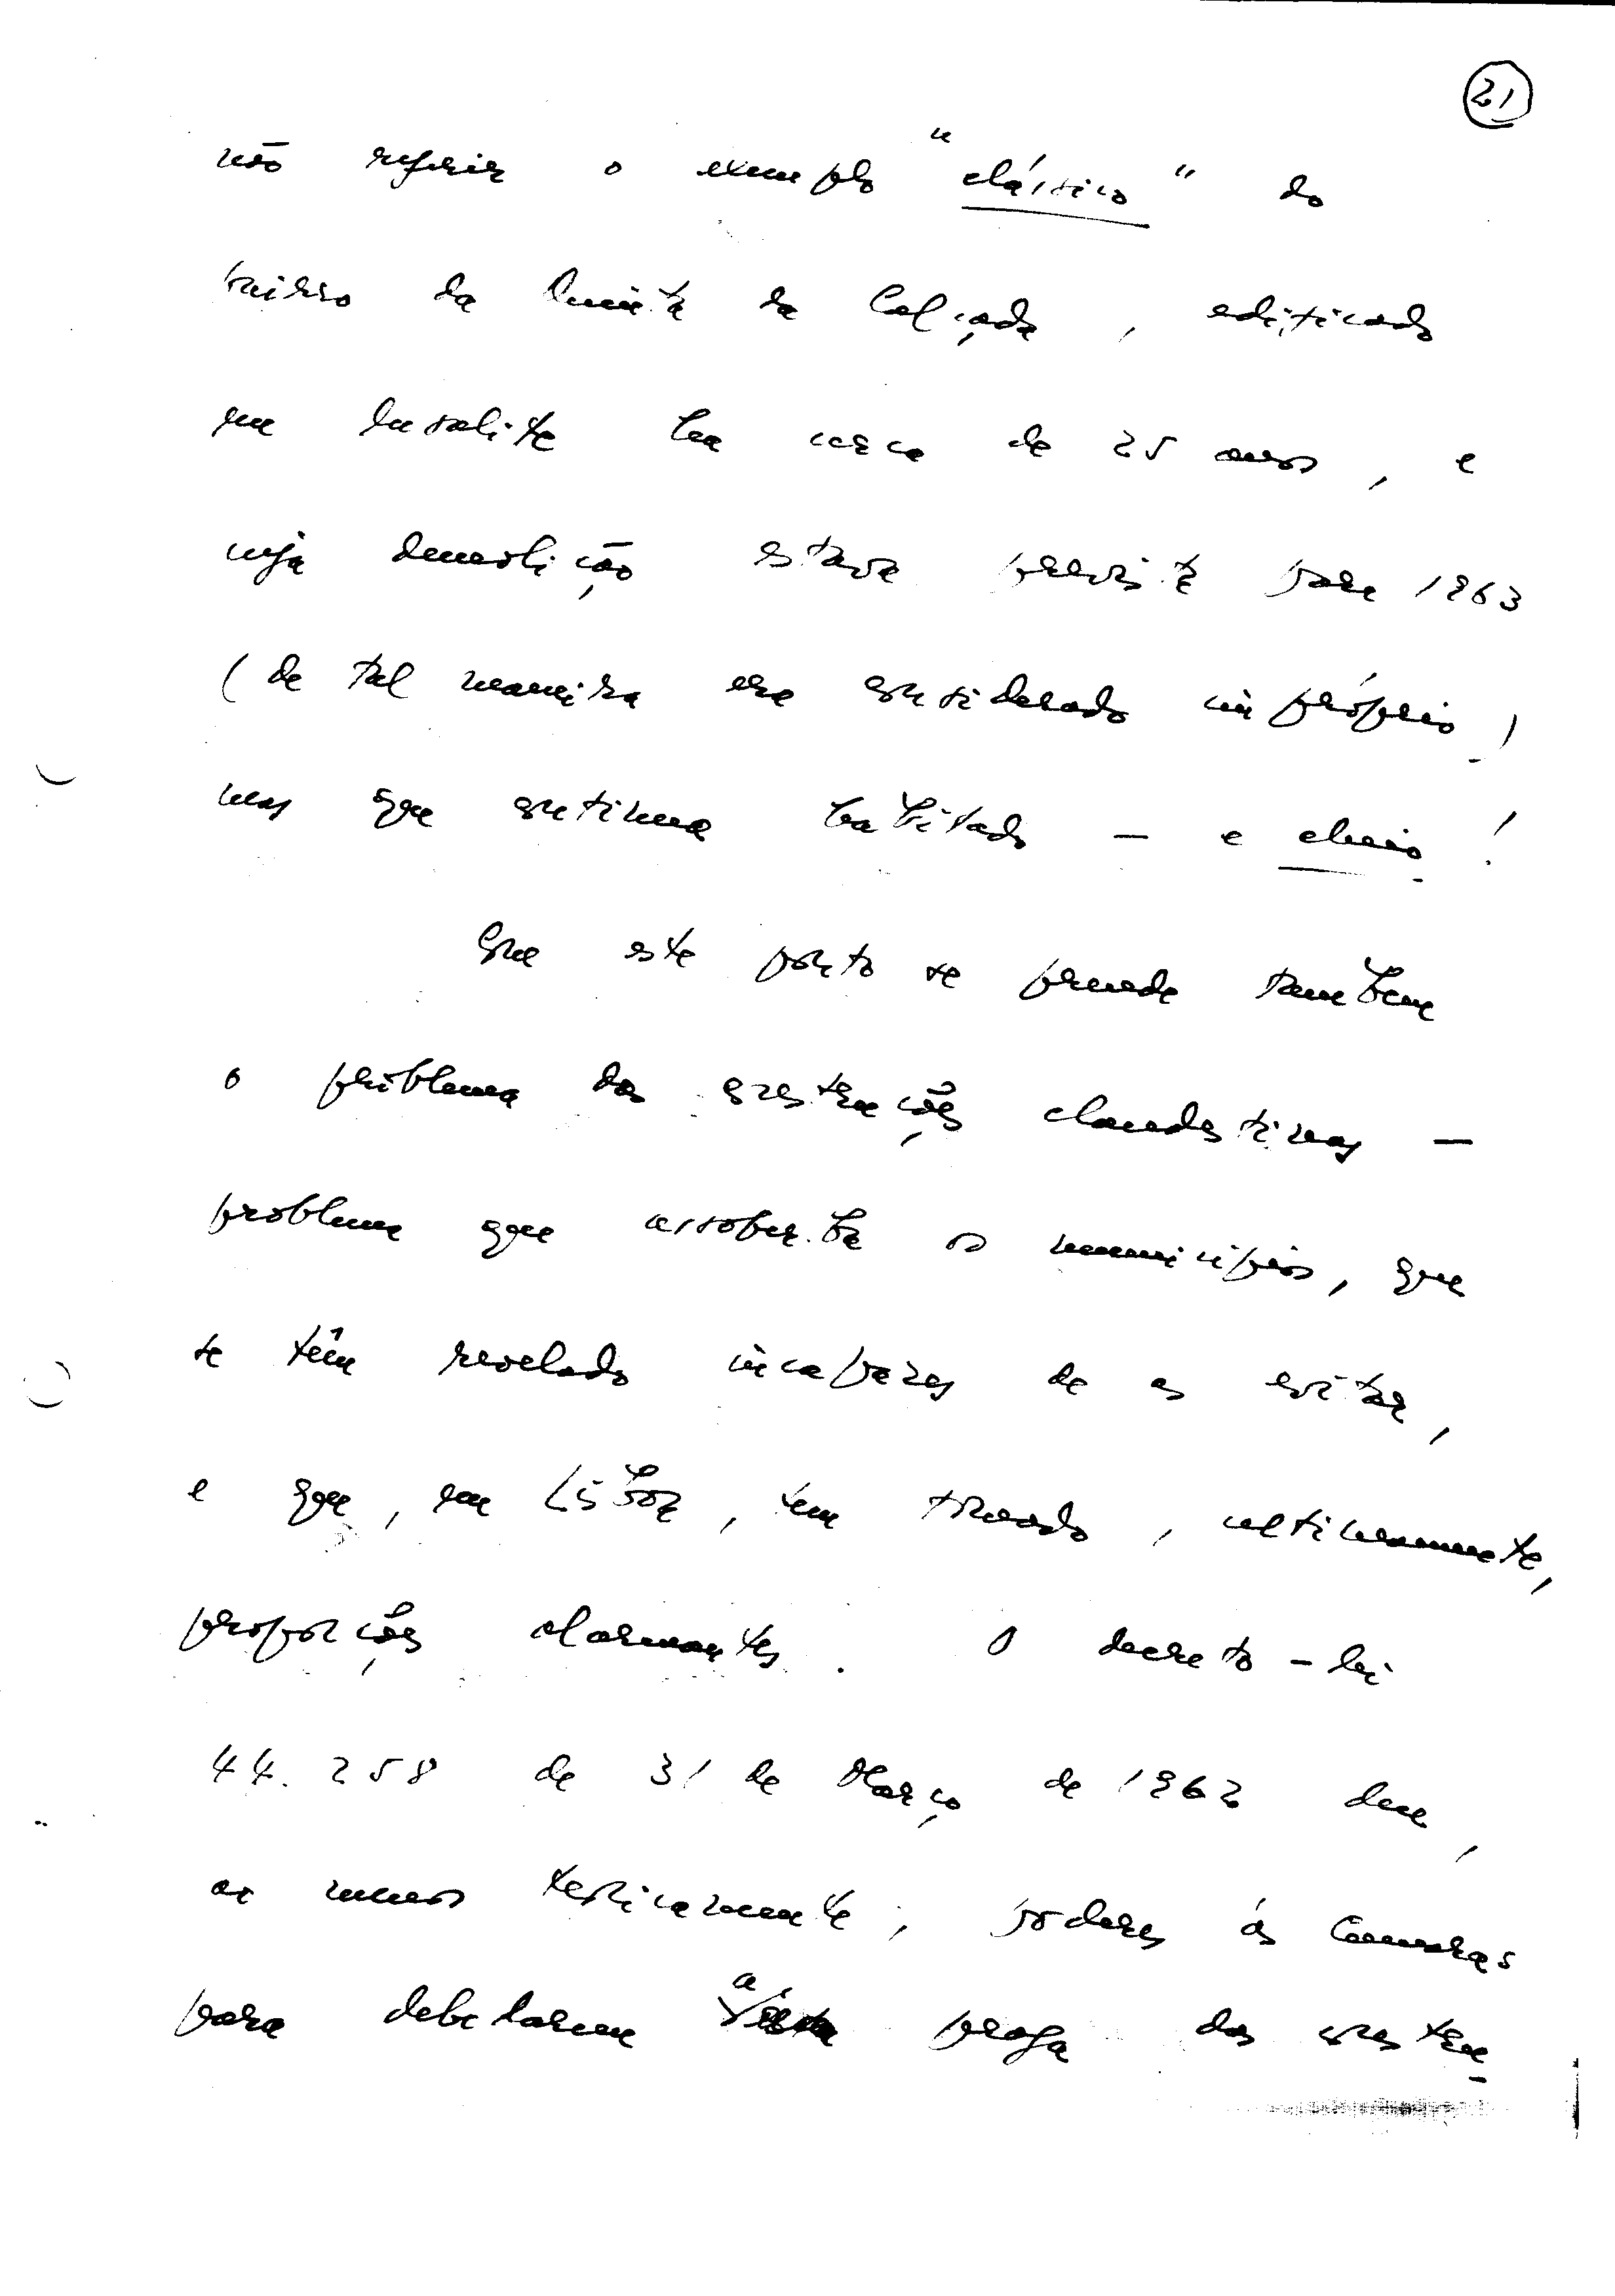 21
não referir o exemplo "clássico" do
bairro da Quinta da Calçada, edificado
em lusalite há cerca de 25 anos, e
cuja demolição estava prevista para 1963
(de tal maneira era considerado impróprio)
mas que continua habitado — e cheio!
Com este ponto se prende também
o problema das construções clandestinas —
problema que assoberba os municípios, que
se têm revelado incapazes de as evitar,
e que, em Lisboa, tem tomado, ultimamente,
proporções alarmantes. O decreto-lei
44.258 de 31 de Março de 1962 deu,
ao menos teoricamente, poderes às Camaras
para debelarem a praga das constru-